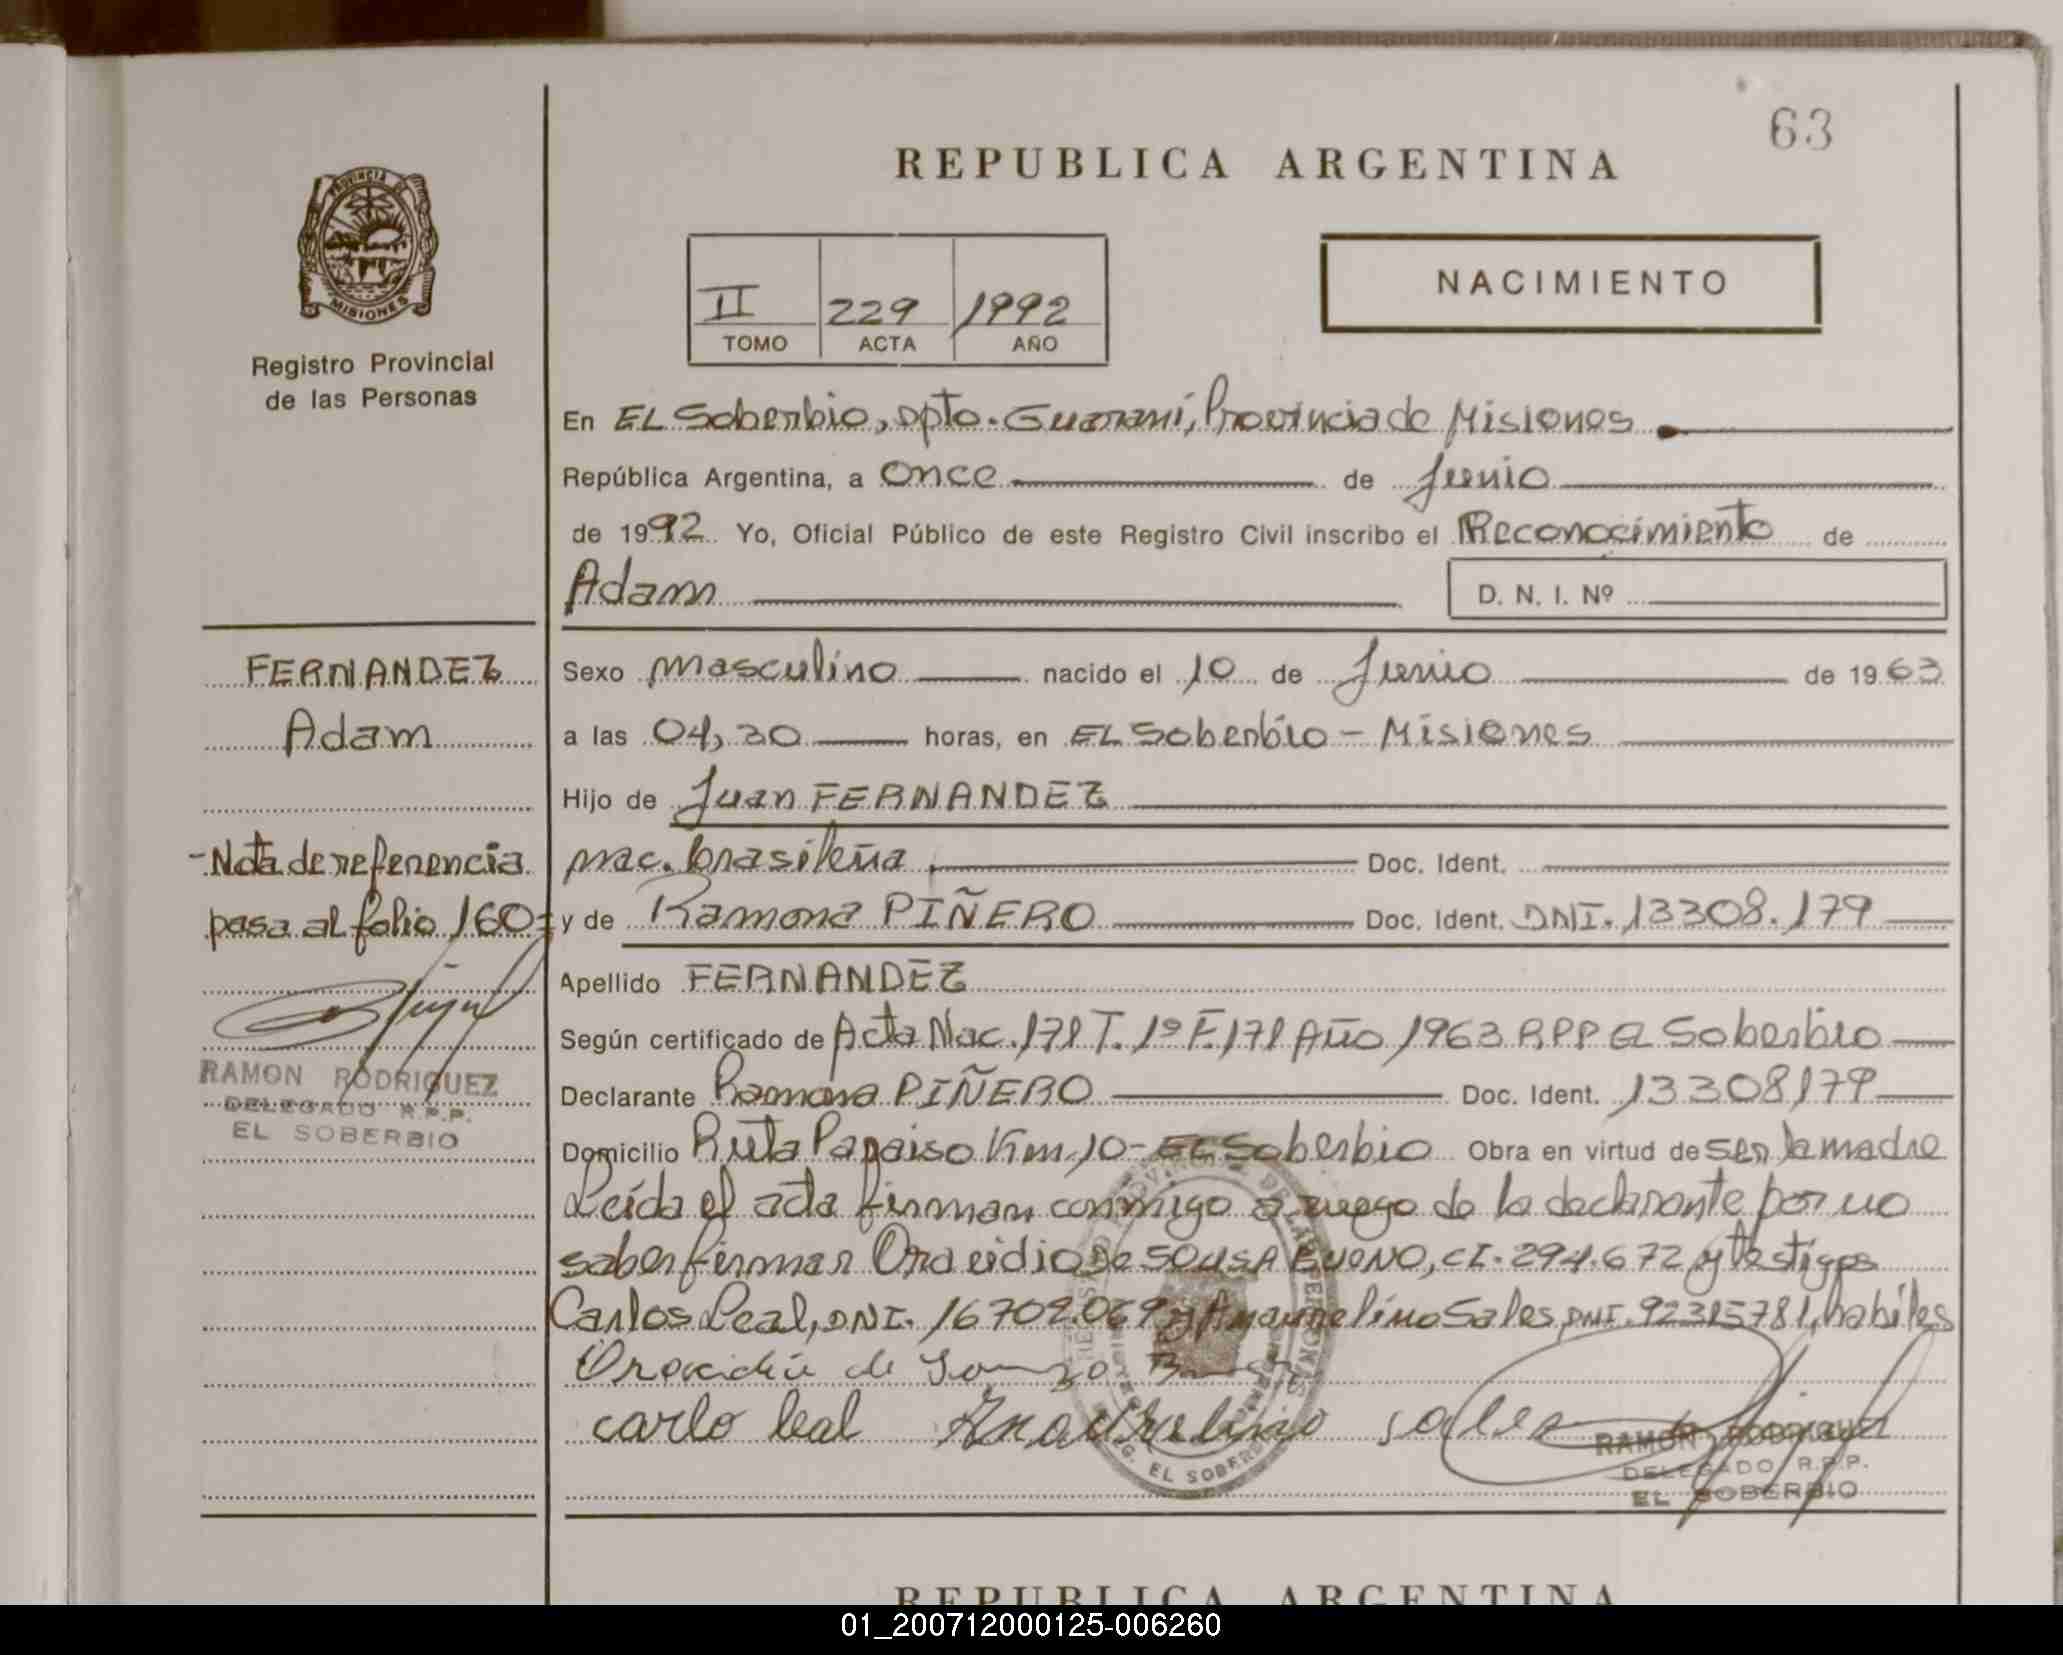 63
REPUBLICA ARGENTINA
PROVINCIA DE
MISIONES
Registro Provincial
de las Personas
II 229 1992
TOMO ACTA AÑO
NACIMIENTO
En EL Soberbio, Dpto. Guaraní, Provincia de Misiones
República Argentina, a once de Junio
de 1992 Yo, Oficial Público de este Registro Civil inscribo el Reconocimiento de
Adam D. N. I. Nº
FERNANDEZ
Adam
Sexo masculino nacido el 10 de Junio de 1963
a las 04,30 horas, en EL Soberbio - Misiones
Hijo de Juan FERNANDEZ
nac. brasileña, Doc. Ident.
y de Ramona PIÑERO Doc. Ident. DNI. 13308.179
-Nota de referencia
pasa al folio 160=
RAMON RODRIGUEZ
DELEGADO R.P.P.
EL SOBERBIO
Apellido FERNANDEZ
Según certificado de Acta Nac. 171 T. 1º F. 171 Año 1963 RPP EL Soberbio
Declarante Ramona PIÑERO Doc. Ident. 13308179
Domicilio Ruta Paraiso Km. 10 - EL Soberbio Obra en virtud de ser la madre
Leída el acta firman conmigo a ruego de la declarante por no
saber firmar Oracidio De SOUSA BUENO, CI. 294.672 y testigos
Carlos Leal, DNI. 16702.069 y Amaurelino Sales, DNI. 92315781, habiles
de
carlo leal sales
RAMON RODRIGUEZ
DELEGADO R.P.P.
EL SOBERBIO
REPUBLICA ARGENTINA
01_200712000125-006260